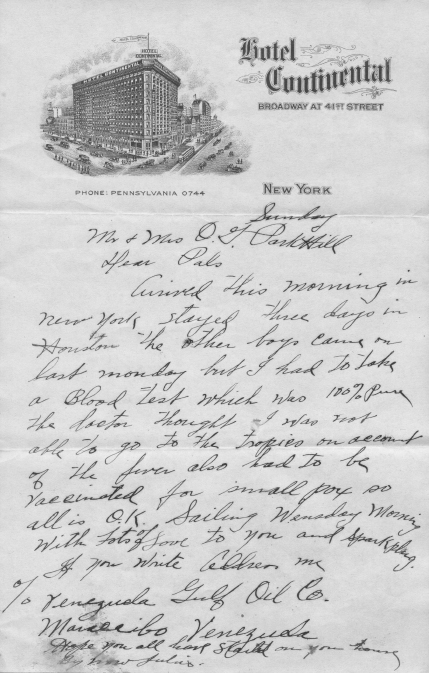 HOTEL
CONTINENTAL
HOTEL CONTINENTAL
Hotel
Continental
BROADWAY AT 41ST STREET
PHONE: PENNSYLVANIA 0744
NEW YORK
Sunday
Mr & Mrs O. G. Parkhill
Dear Pals
Arived this morning in
new york stayed three days in
Houston the other boys came on
last monday but I had to take
a Blood test which was 100% Pure
the Doctor thought I was not
able to go to the tropics on account
of the fever also had to be
vaccinated for small pox so
all is O.K. Sailing Wensday Morning
with lots of Love to you and Sparkplug.
If you write Address me
c/o Venezuela Gulf Oil Co.
Maracibo Venezuela
Hope you all have started on your home
by now